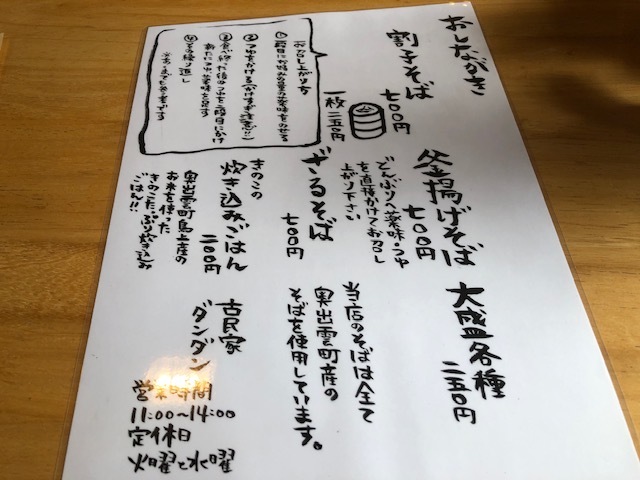 おしながき
割子そば
七〇〇円
一枚 二五〇円
お召し上がり方
①一段目にお好み量の薬味をのせる
②つゆをかける(かけすぎ注意!!)
③食べ終わた後のつゆを二段目にかけ
新たにつゆ、薬味を足す
④その繰り返し
釜揚げそば
七〇〇円
どんぶりへ薬味・つゆ
を直接かけてお召し
上がり下さい
ざるそば
七〇〇円
きのこの
炊き込みごはん
二〇〇円
奥出雲町鳥上産の
お米を使った
きのこたっぷり炊き込み
ごはん!!
大盛各種
二五〇円
当店のそばは全て
奥出雲町産の
そばを使用しています。
古民家
ダンダン
営業時間
11:00~14:00
定休日
火曜と水曜